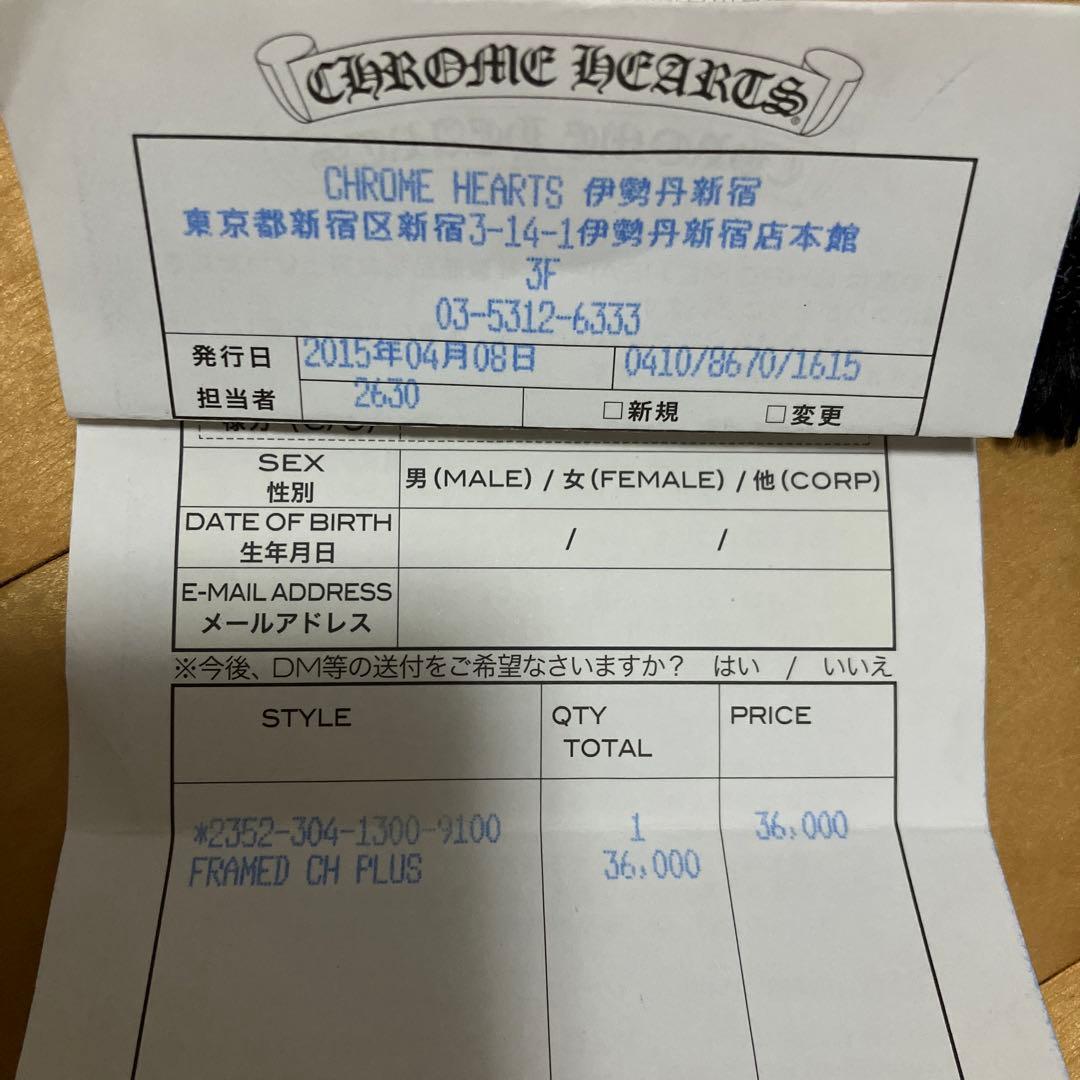 CHROME HEARTS
CHROME HEARTS 伊勢丹新宿
東京都新宿区新宿3-14-1伊勢丹新宿店本館
3F
03-5312-6333
発行日 2015年04月08日 0410/8670/1615
担当者 2630 □新規 □変更
SEX
性別
男(MALE) / 女(FEMALE) / 他(CORP)
DATE OF BIRTH
生年月日
/ /
E-MAIL ADDRESS
メールアドレス
※今後、DM等の送付をご希望なさいますか? はい / いいえ
STYLE QTY PRICE
TOTAL
*2352-304-1300-9100 1 36,000
FRAMED CH PLUS 36,000